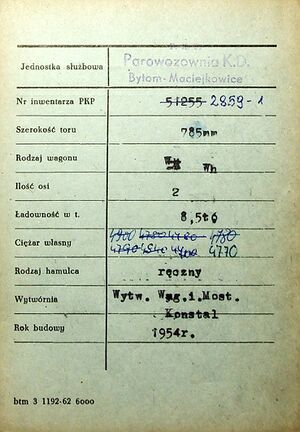 Jednostka służbowa Parowozownia K.D.
Bytom-Maciejkowice
Nr inwentarza PKP 51255 2859-1
Szerokość toru 785mm
Rodzaj wagonu Wh
Ilość osi 2
Ładowność w t. 8,5t6
Ciężar własny 4900 4780 4780
4790 4840 4700 4770
Rodzaj hamulca ręczny
Wytwórnia Wytw. Wag.i.Most.
Konstal
Rok budowy 1954r.
btm 3 1192-62 6000